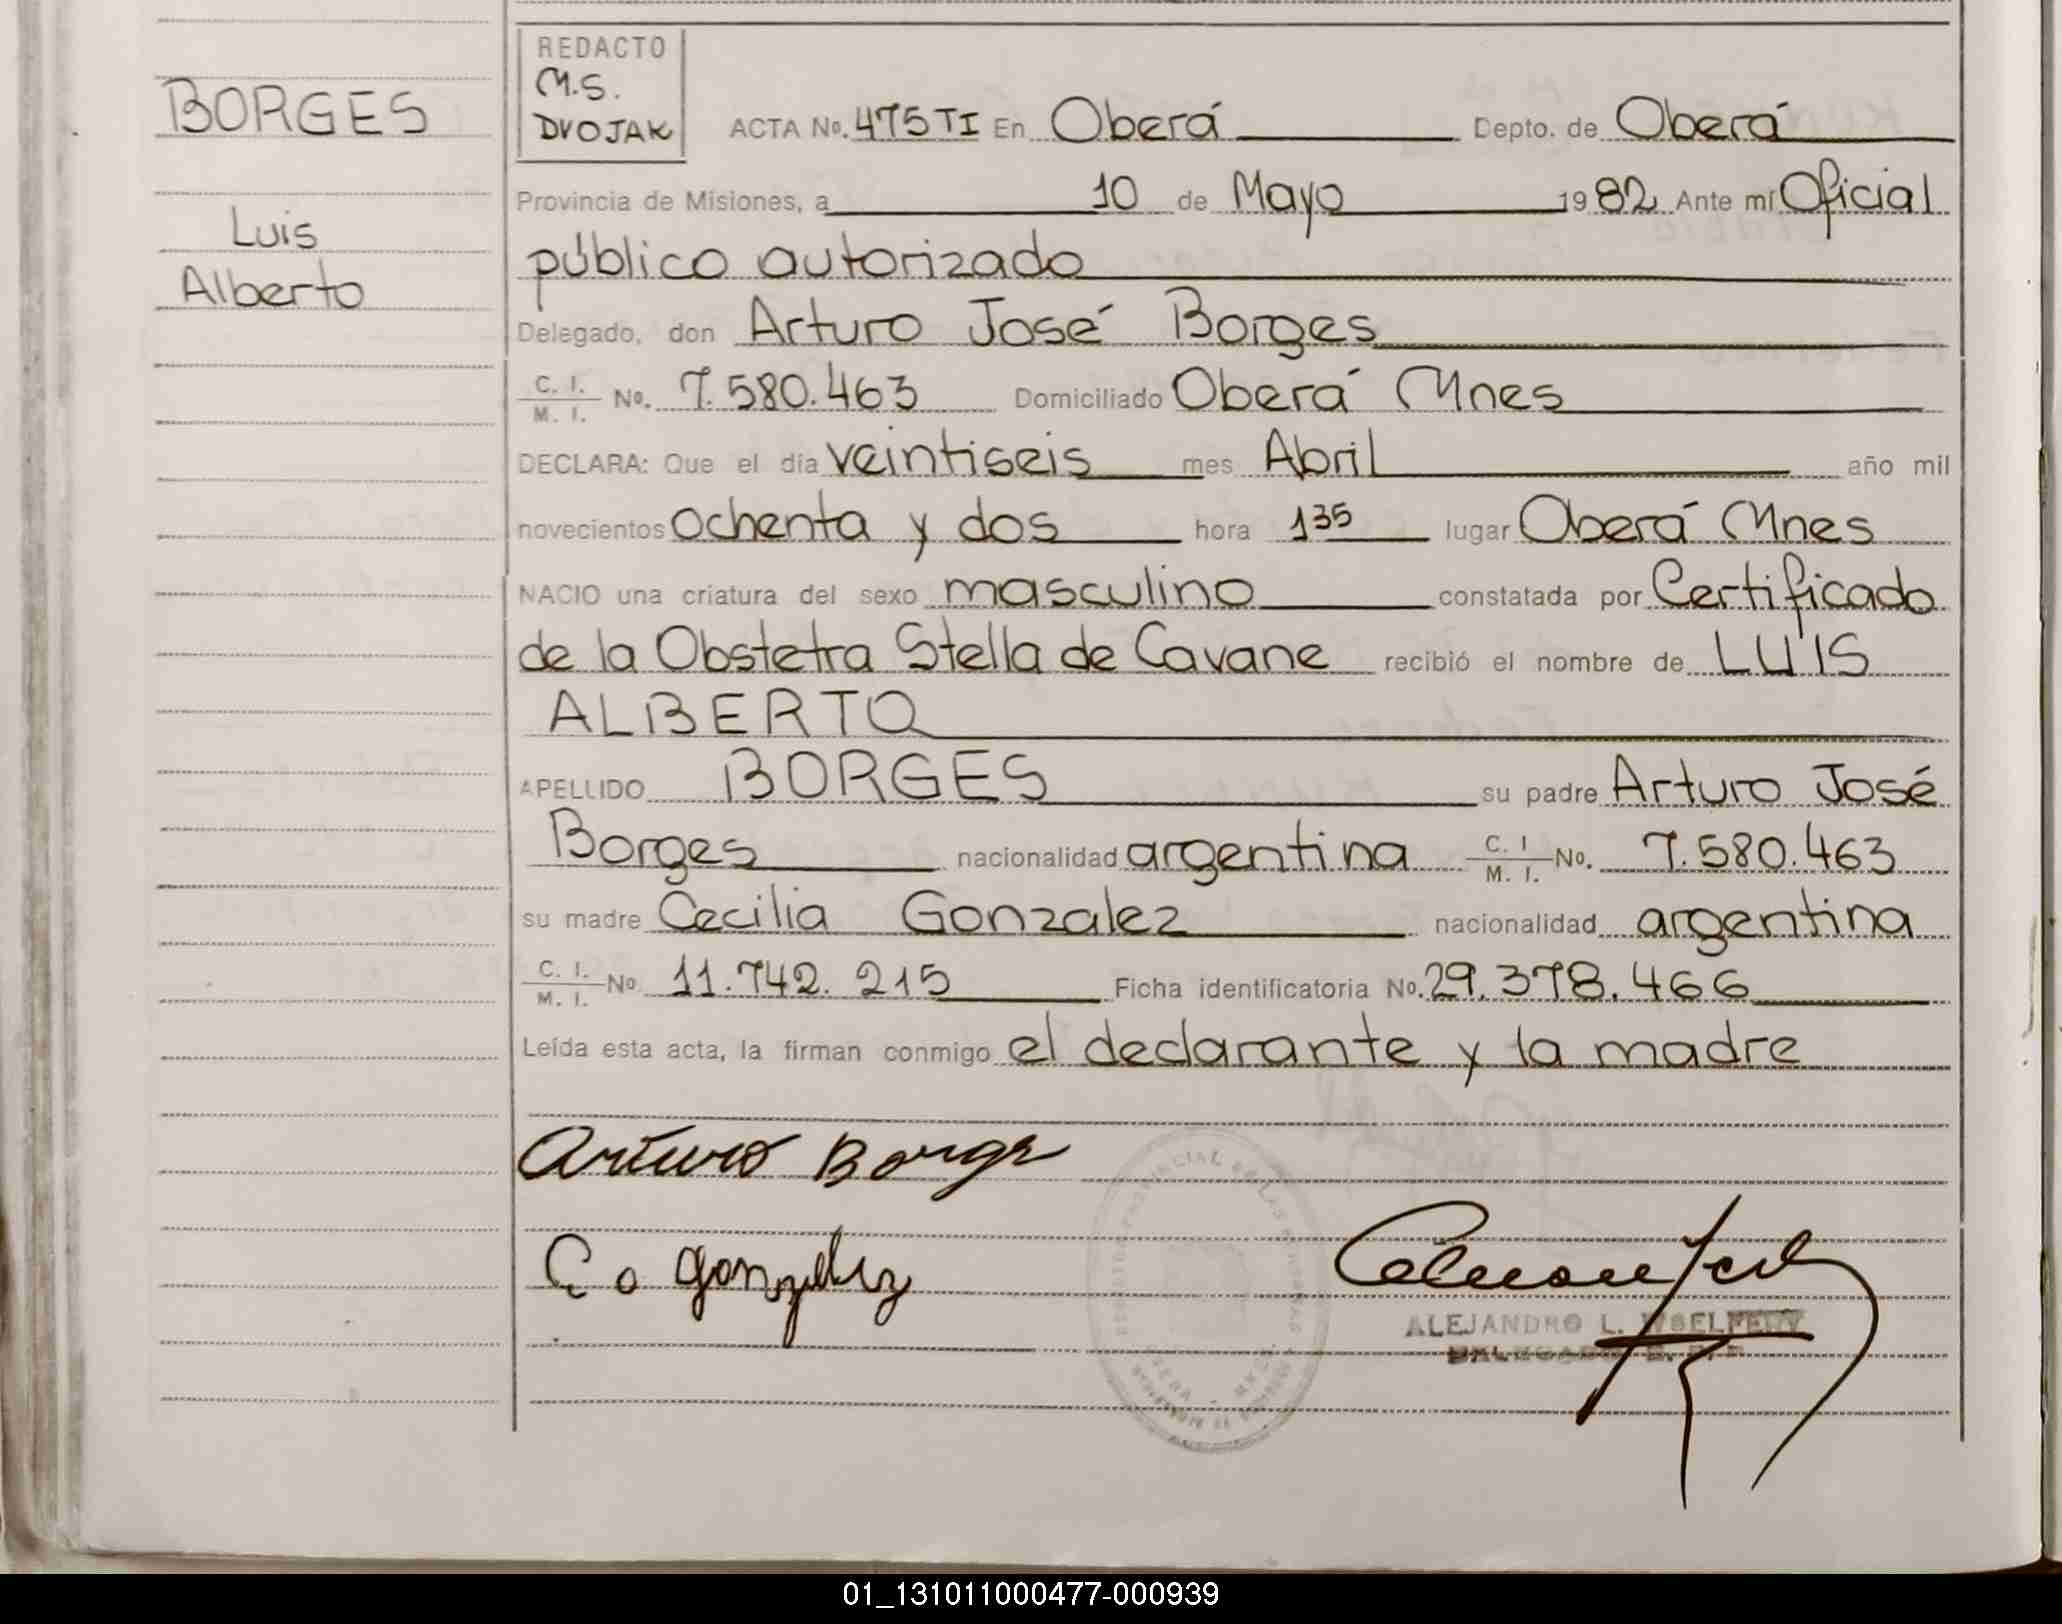 BORGES
Luis
Alberto
REDACTO
M.S.
DVOJAK
ACTA No. 475 TI En Oberá Depto. de Oberá
Provincia de Misiones, a 10 de Mayo 1982 Ante mí Oficial
público autorizado
Delegado, don Arturo José Borges
C. I. / M. I. No. 7.580.463 Domiciliado Oberá Mnes
DECLARA: Que el día veintiseis mes Abril año mil
novecientos ochenta y dos hora 1 35 lugar Oberá Mnes
NACIO una criatura del sexo masculino constatada por Certificado
de la Obstetra Stella de Cavane recibió el nombre de LUIS
ALBERTO
APELLIDO BORGES su padre Arturo José
Borges nacionalidad argentina C. I / M. I. No. 7.580.463
su madre Cecilia Gonzalez nacionalidad argentina
C. I. / M. I. No 11.742.215 Ficha identificatoria No. 29.378.466
Leída esta acta, la firman conmigo el declarante y la madre
Arturo Borge
ALEJANDRO L.
01_131011000477-000939